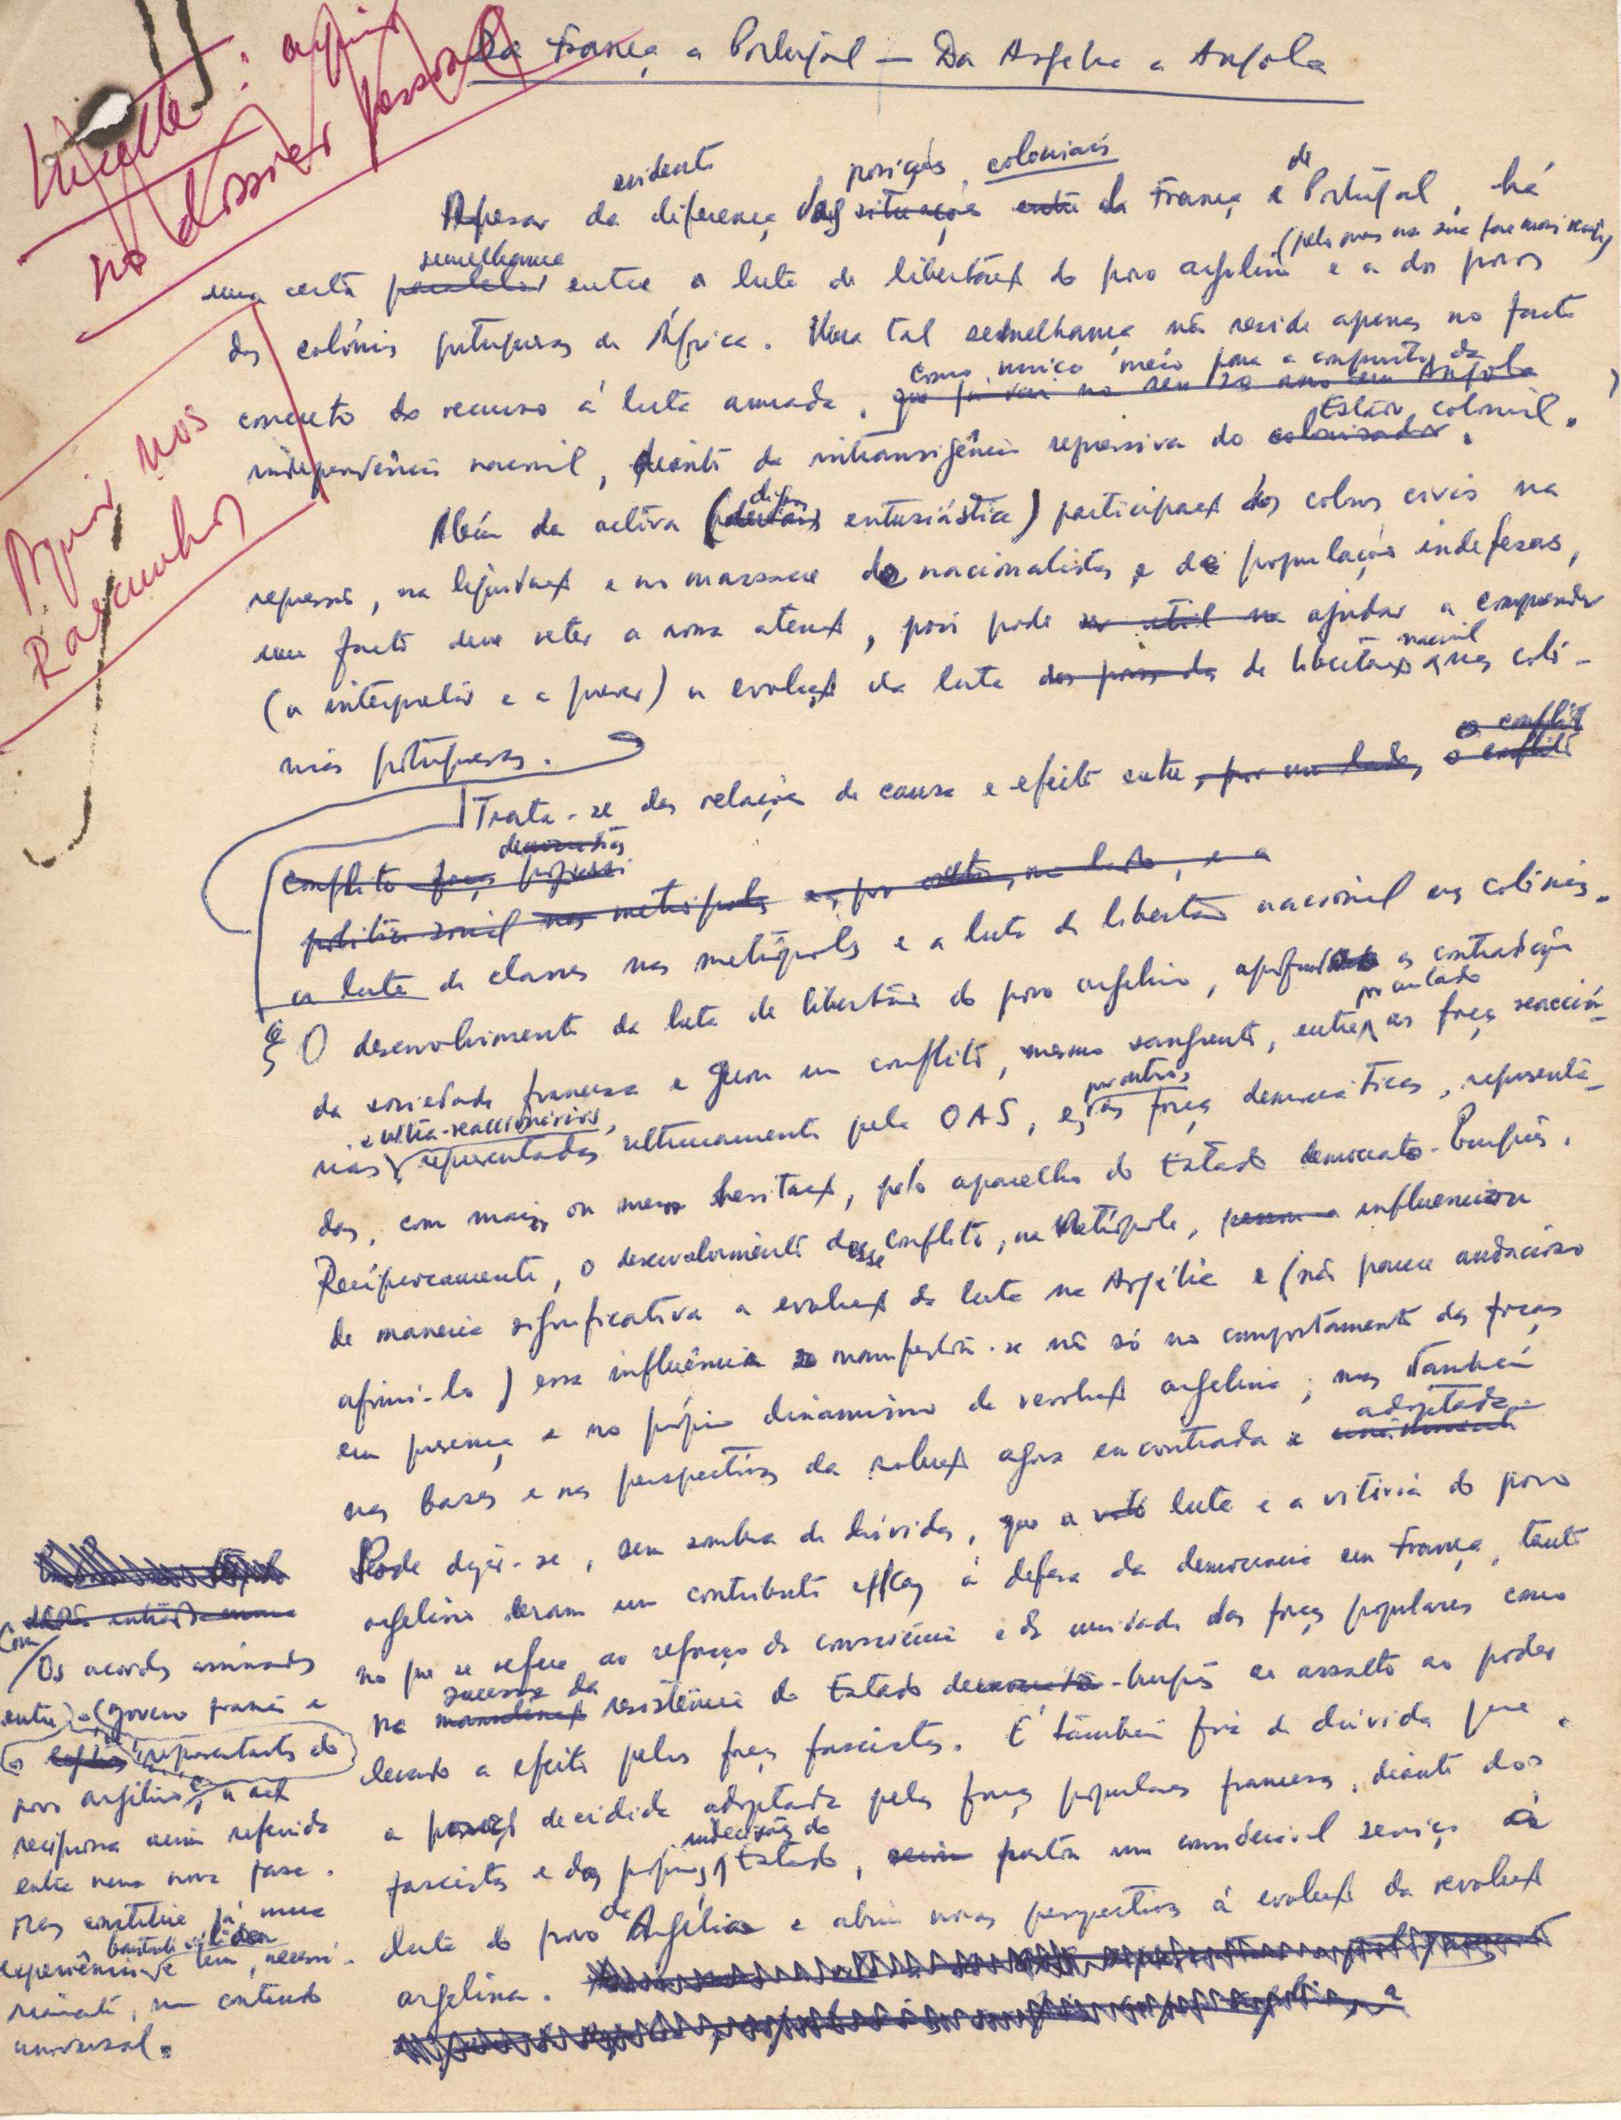 Da França a Portugal — Da Argélia a Angola
Lucette: arquivo
no dossier pessoal
Arquivo nos
Rascunhos
Apesar da diferença evidente das posições coloniais da França e de Portugal, há
uma certa semelhança entre a luta de libertação do povo argelino (pelo menos na sua fase mais recente) e a dos povos
das colónias portuguesas de África. Uma tal semelhança não reside apenas no facto
concreto do recurso à luta armada, como único meio para a conquista da
independência nacional, diante da intransigência repressiva do Estado colonial.
Além da activa (diga entusiástica) participação dos colonos civis na
repressão, na liquidação e no massacre de nacionalistas e de populações indefesas,
um facto deve reter a nossa atenção, pois pode ajudar a compreender
(a interpretar e a prever) a evolução da luta de libertação nacional nas coló-
nias portuguesas.
Trata-se das relações de causa e efeito entre
a luta de classes nas metrópoles e a luta de libertação nacional nas colónias.
O desenvolvimento da luta de libertação do povo argelino, aprofundou as contradições
da sociedade francesa e gerou um conflito, mesmo sangrento, entre, por um lado, as forças reaccioná-
rias e ultra-reaccionárias, representadas ultimamente pela OAS, e, por outro, as forças democráticas, representa-
das, com mais ou menos hesitação, pelo aparelho do Estado democrato-burguês.
Reciprocamente, o desenvolvimento desse conflito, na Metrópole, influenciou
de maneira significativa a evolução da luta na Argélia e (não parece audacioso
afirmá-lo) essa influência manifestou-se não só no comportamento das forças
em presença e no próprio dinamismo da revolução argelina, mas também
nas bases e nas perspectivas da solução agora encontrada e adoptada.
Pode dizer-se, sem sombra de dúvidas, que a luta e a vitória do povo
argelino deram um contributo eficaz à defesa da democracia em França, tanto
no que se refere ao reforço da consciência e da unidade das forças populares como
no sucesso da resistência do Estado democrato-burguês ao assalto ao poder
levado a efeito pelas forças fascistas. É também fora de dúvida que
a posição decidida adoptada pelas forças populares francesas, diante dos
fascistas e das próprias indecisões do Estado, prestou um considerável serviço à
luta do povo da Argélia e abriu novas perspectivas à evolução da revolução
argelina.
Com
os acordos assinados
entre o governo francês e
os representantes do
povo argelino, a acção
recíproca acima referida
entra numa nova fase.
Mas constitui já uma
experiência bastante válida e tem, necessa-
riamente, um conteúdo
universal.